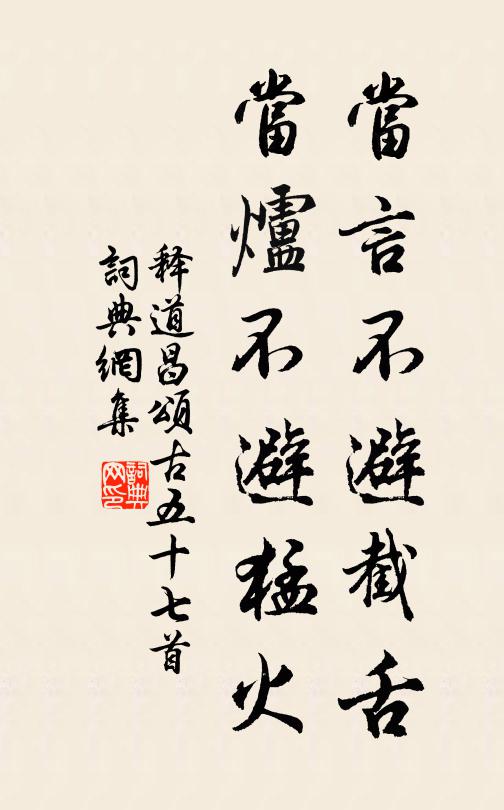 當言不避截舌
當爐不避猛火
释道昌頌古五十七首
詞典網集
詞典网印